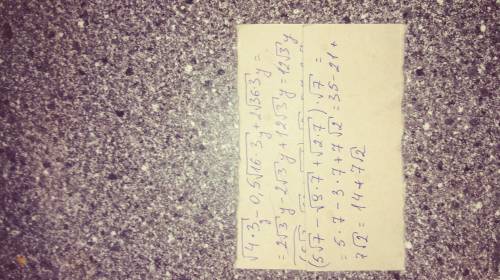 √4·3 − 0,5√16·3y + 2√36·3y =
= 2√3y − 2√3y + 12√3y = 12√3y
(5√7 − √9·7 + √2·7)·√7 =
= 5·7 − 3·7 + 7√2 = 35 − 21 +
7√2 = 14 + 7√2